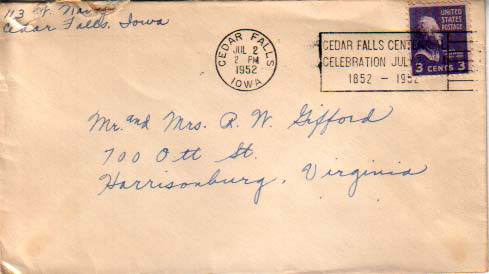 113 W.
Cedar Falls, Iowa
CEDAR FALLS
JUL 2
2 PM
1952
IOWA
CEDAR FALLS
CELEBRATION JULY
1852 - 1952
UNITED
STATES
POSTAGE
3 CENTS 3
Mr. and Mrs. R. W. Gifford
700 Ott St.
Harrisonburg, Virginia